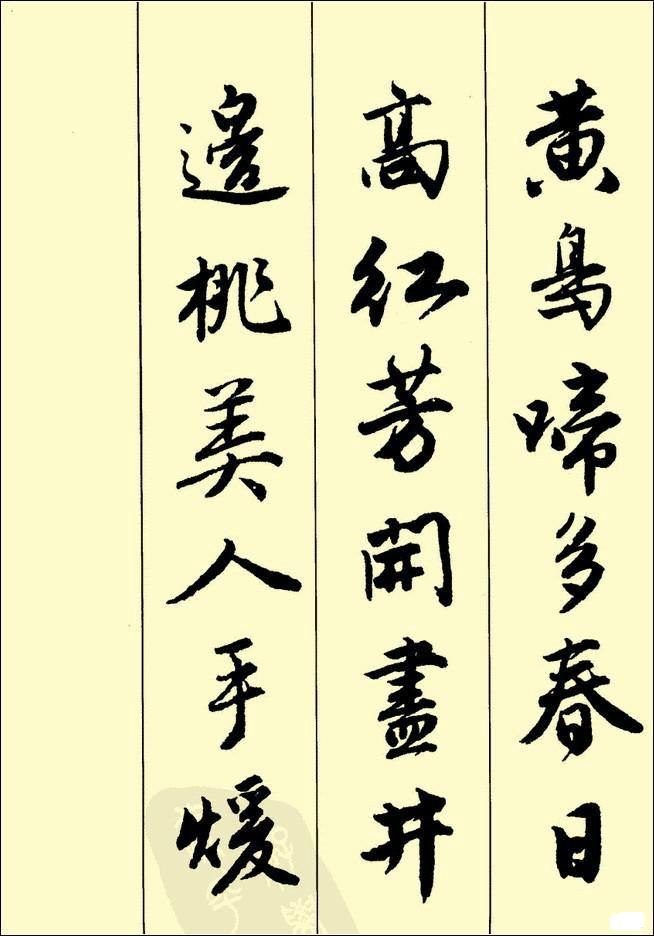 黄鳥啼多春日
高紅芳開盡井
邊桃美人手暖